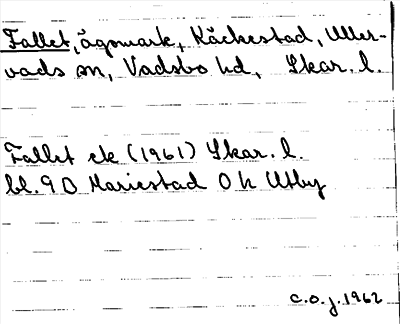 Fallet, ägomark, Käckestad, Uller-
vads sn, Vadsbo hd, Skar. l.
Fallet ek (1961) Skar. l.
bl. 9 D Mariestad O h Utby
c.o.j. 1962